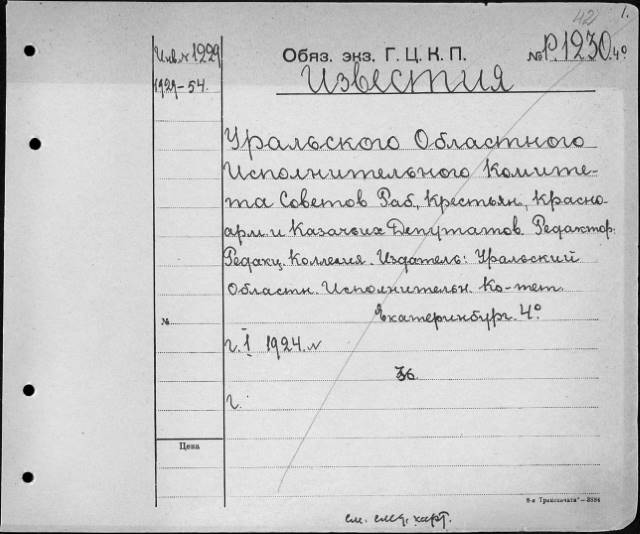 42 1.
Инв. № 1229
1929-54.
Обяз. экз. Г. Ц. К. П. № Р.1230. 4º
Известия
Уральского Областного
Исполнительного Комите-
та Советов Раб., Крестьян, Красно-
арм. и Казачьих Депутатов. Редактор:
Редакц. Коллегия. Издатель: Уральский
Областн. Исполнительн. Ко-тет.
Екатеринбург. 4º
№
г. I 1924. №
г.
Цена
см. след. карт.